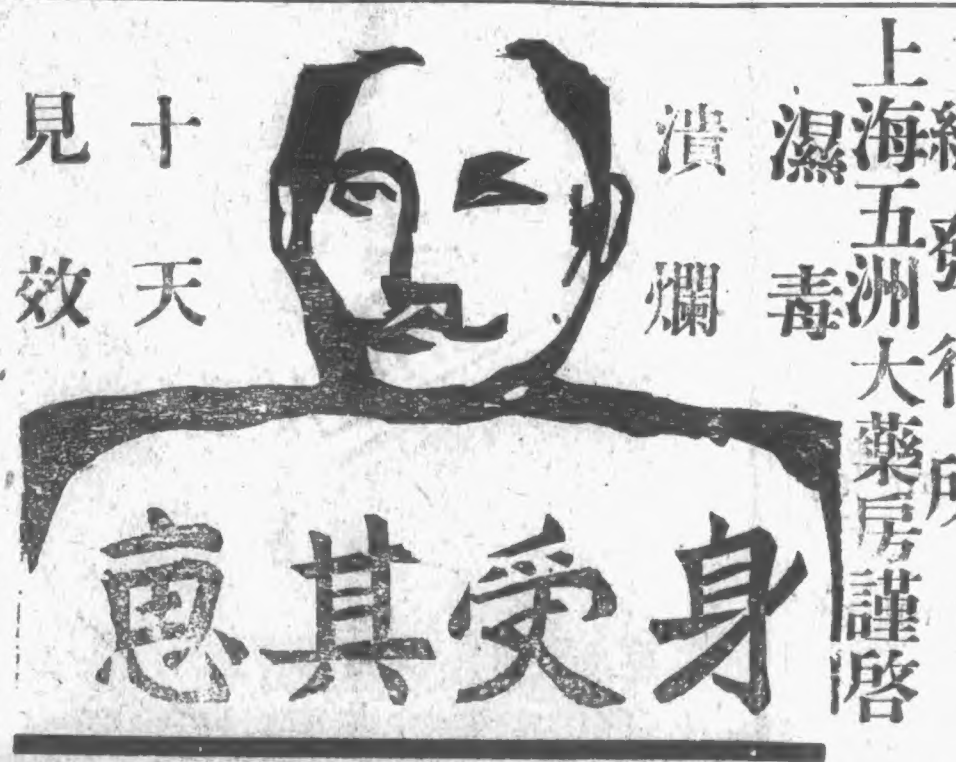 總發行所
上海五洲大藥房謹啓
濕毒
潰爛
十天
見效
身受其惠